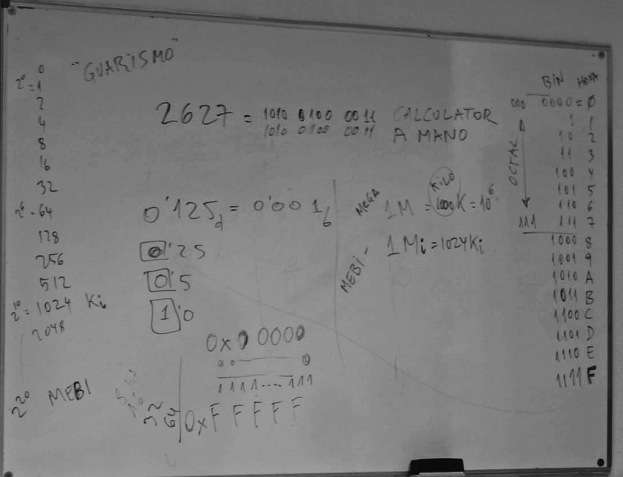 "GUARISMO"
0
2⁰=1
2
4
8
16
32
2⁶=64
128
256
512
2¹⁰=1024 Ki
2048
2²⁰ MEBI
2627 = 1010 0100 0011 CALCULATOR
1010 0100 0011 A MANO
0'125d = 0'001b
0'25
0'5
1'0
MEGA 1M = 1000K = 10⁶
KILO
MEBI- 1Mi=1024Ki
0x00000
0
1111....111
0xFFFFF
32
64
BIN HEXA
000 0000=0
1 1
10 2
11 3
100 4
101 5
110 6
111 111 7
OCTAL
1000 8
1001 9
1010 A
1011 B
1100 C
1101 D
1110 E
1111 F